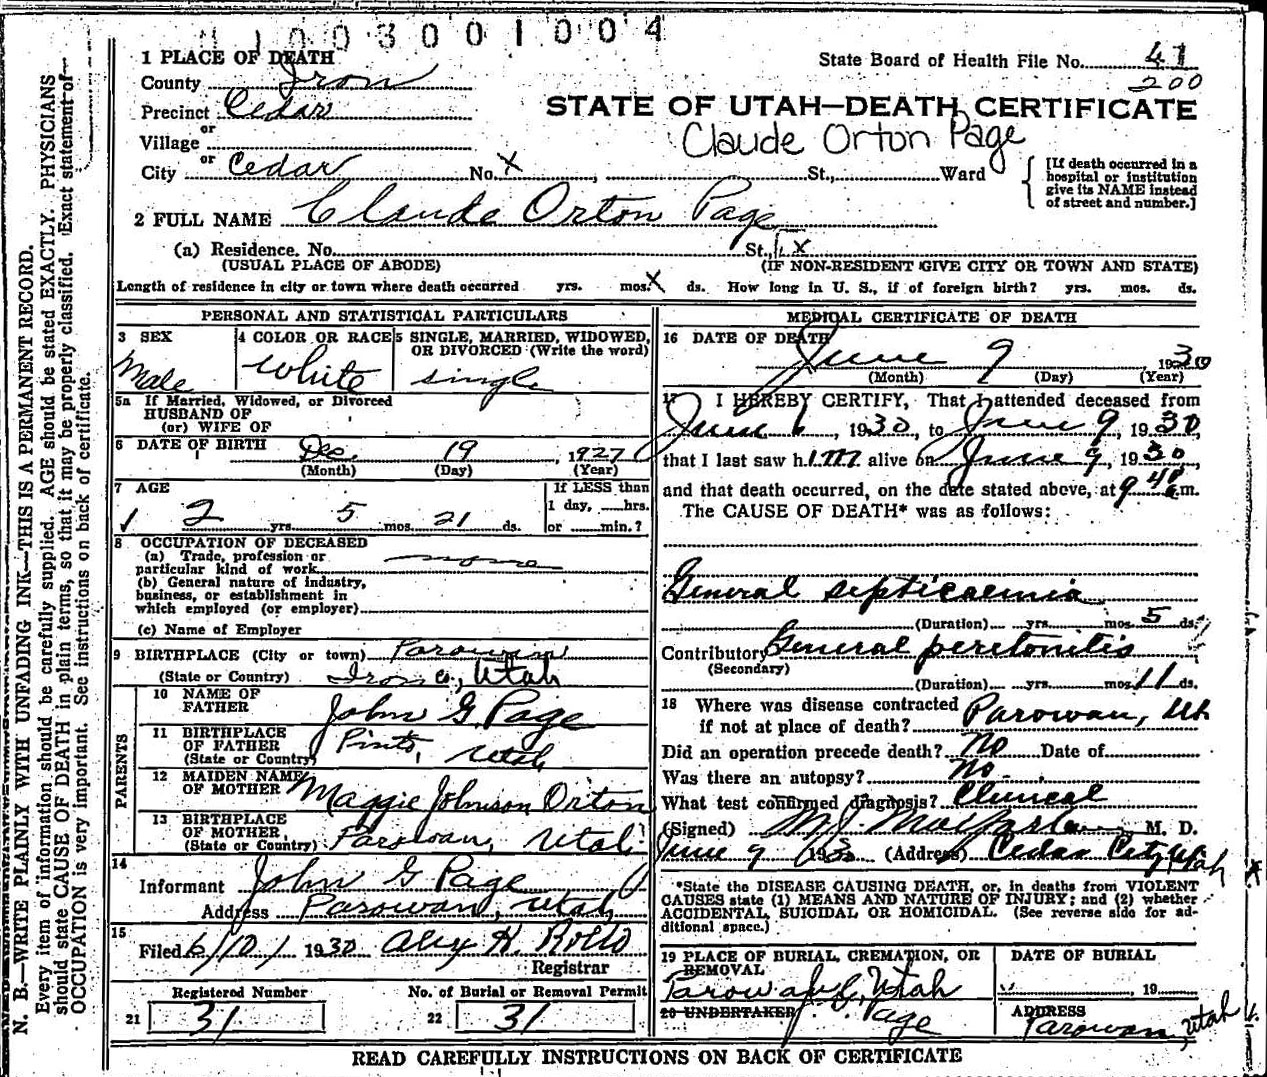 1003001004
1 PLACE OF DEATH
State Board of Health File No. 41
200
County Iron
Precinct Cedar
STATE OF UTAH—DEATH CERTIFICATE
or
Village
Claude Orton Page
or
City Cedar No. X , St., Ward
[If death occurred in a
hospital or institution
give its NAME instead
of street and number.]
2 FULL NAME Claude Orton Page
(a) Residence. No. St., X
(USUAL PLACE OF ABODE) (IF NON-RESIDENT GIVE CITY OR TOWN AND STATE)
Length of residence in city or town where death occurred yrs. mos. X ds. How long in U. S., if of foreign birth? yrs. mos. ds.
PERSONAL AND STATISTICAL PARTICULARS
3 SEX
Male
4 COLOR OR RACE
White
5 SINGLE, MARRIED, WIDOWED,
OR DIVORCED (Write the word)
single
5a If Married, Widowed, or Divorced
HUSBAND OF
(or) WIFE OF
6 DATE OF BIRTH Dec 19 , 1927
(Month) (Day) (Year)
7 AGE
2 yrs. 5 mos. 21 ds.
If LESS than
1 day, hrs.
or min.?
8 OCCUPATION OF DECEASED
(a) Trade, profession or
particular kind of work none
(b) General nature of industry,
business, or establishment in
which employed (or employer)
(c) Name of Employer
9 BIRTHPLACE (City or town) Parowan
(State or Country) Iron co., Utah
PARENTS
10 NAME OF
FATHER John G. Page
11 BIRTHPLACE
OF FATHER
(State or Country) Pinto, Utah
12 MAIDEN NAME
OF MOTHER Maggie Johnson Orton
13 BIRTHPLACE
OF MOTHER
(State or Country) Parowan, Utah
14
Informant John G Page
Address Parowan, Utah
15
Filed 6/10, 1930 Alex H. Rollo
Registrar
Registered Number No. of Burial or Removal Permit
21 31 22 31
MEDICAL CERTIFICATE OF DEATH
16 DATE OF DEATH
June 9 1930
(Month) (Day) (Year)
17 I HEREBY CERTIFY, That I attended deceased from
June 6, 1930, to June 9, 1930,
that I last saw him alive on June 9, 1930,
and that death occurred, on the date stated above, at 9 40 a.m.
The CAUSE OF DEATH* was as follows:
General septicaemia
(Duration) yrs. mos. 5 ds.
Contributory General peritonitis
(Secondary)
(Duration) yrs. mos. 11 ds.
18 Where was disease contracted
if not at place of death? Parowan, Ut
Did an operation precede death? No Date of
Was there an autopsy? No
What test confirmed diagnosis? Clinical
(Signed) M. J. Macfarlane M. D.
June 9 1930 (Address) Cedar City, Utah
*State the DISEASE CAUSING DEATH, or, in deaths from VIOLENT
CAUSES state (1) MEANS AND NATURE OF INJURY; and (2) whether
ACCIDENTAL, SUICIDAL OR HOMICIDAL. (See reverse side for ad-
ditional space.)
19 PLACE OF BURIAL, CREMATION, OR
REMOVAL
Parowan, Utah
DATE OF BURIAL
, 19
20 UNDERTAKER J. G. Page
ADDRESS
Parowan, Utah
READ CAREFULLY INSTRUCTIONS ON BACK OF CERTIFICATE
N. B.—WRITE PLAINLY WITH UNFADING INK—THIS IS A PERMANENT RECORD.
Every item of information should be carefully supplied. AGE should be stated EXACTLY. PHYSICIANS
should state CAUSE OF DEATH in plain terms, so that it may be properly classified. Exact statement of
OCCUPATION is very important. See instructions on back of certificate.